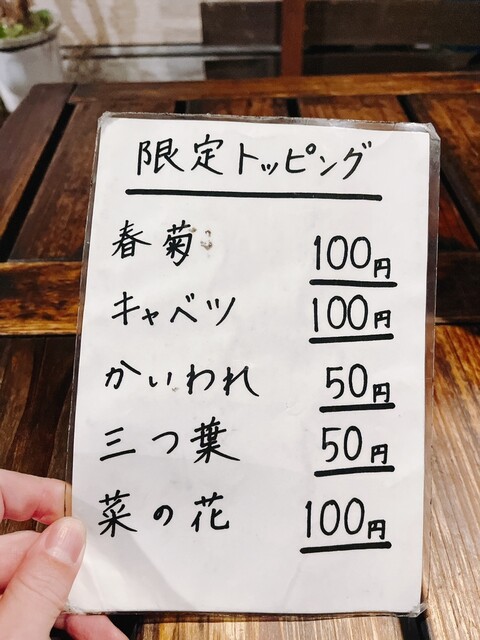 限定トッピング
春菊 100円
キャベツ 100円
かいわれ 50円
三つ葉 50円
菜の花 100円